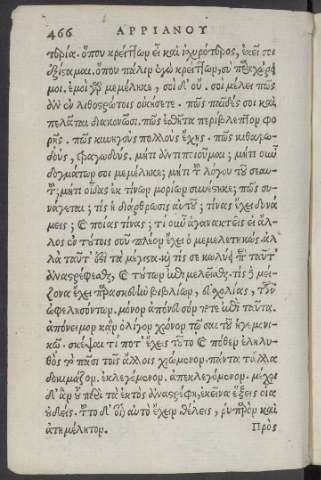 466 ΑΡΡΙΑΝΟΥ
τορία. ὅπου κρείττων εἶ καὶ ἰσχυρότερος, ἐκεῖ σοι
ἐξίσαμαι. ὅπου πάλιν ἐγὼ κρείττων, σὺ παραχώρει
μοι. ἐμοὶ γὰρ μεμέληκε, σοὶ δ' οὔ. σοὶ μέλει πῶς
ἂν ἐν λιθοστρώτοις οἰκήσετε. πῶς παῖδές σοι καὶ
πελᾶται διακονῶσι. πῶς ἐσθῆτα περίβλεπτον φο
ρῇς. πῶς κυνηγοὺς πολλοὺς ἔχῃς. πῶς κιθαρῳ-
δοὺς, τραγῳδούς. μήτι ἀντιποιοῦμαι; μήτι οὖν
δογμάτων σοι μεμέληκε; μήτι τοῦ λόγου τοῦ σεαυ-
τοῦ; μήτι οἶδας ἐκ τίνων μορίων συνέστηκε; πῶς συ-
νάγεται; τίς ἡ διάρθρωσις αὐτοῦ; τίνας ἔχει δυνά
μεις; καὶ ποίας τινας; τί οὖν ἀγανακτεῖς εἰ ἄλ-
λος ἐν τούτοις σοῦ πλέον ἔχει ὁ μεμελετηκώς; ἀλ
λὰ ταῦτ' ἐστὶ τὰ μέγιστα. καὶ τίς σε κωλύει περὶ ταῦτ'
ἀναστρέφεσθαι, καὶ τούτων ἐπιμελεῖσθαι; τίς δὲ μεί-
ζονα ἔχει παρασκευὴν βιβλίων, εὐσχολίας, τῶν
ὠφελησόντων. μόνον ἀπόνευσόν ποτε ἐπὶ ταῦτα.
ἀπόνειμον κἂν ὀλίγον χρόνον τῷ σαυτοῦ ἡγεμονι-
κῷ. σκέψαι τί ποτ' ἔχεις τοῦτο καὶ πόθεν ἐληλυ-
θὸς τὸ πᾶσι τοῖς ἄλλοις χρώμενον. πάντα τἄλλα
δοκιμάζον. ἐκλεγόμενον. ἀπεκλεγόμενον. μέχρι
δ' ἂν οὗ περὶ τὰ ἐκτὸς ἀναστρέφῃ, ἐκεῖνα ἕξεις οἷα
οὐδείς. τοῦτο δ' οἷον αὐτὸ ἔχειν θέλεις, ῥυπαρὸν καὶ
ἀτημέλητον.
Πρὸς